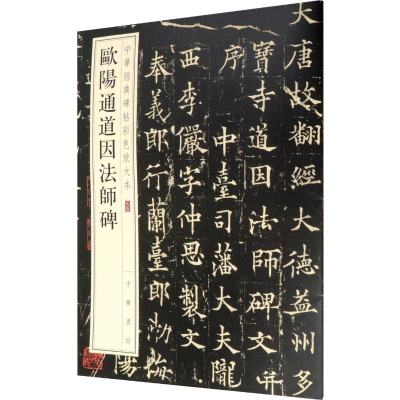 中華經典碑帖彩色放大本
歐陽通道因法師碑
中華書局
大唐故翻經大德益州多
寶寺道因法師碑文并
序 中臺司藩大夫隴
西李儼字仲思製文
奉義郎行蘭臺郎渤海
陽